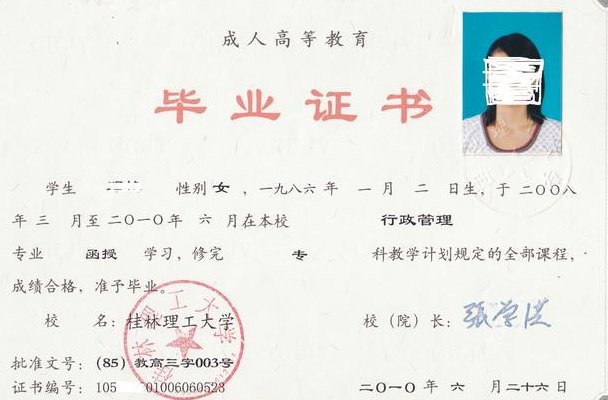 成人高等教育
毕业证书
学生 性别 女，一九八六年 一 月 二 日生，于二〇〇八
年 三 月至二〇一〇年 六 月在本校 行政管理
专业 函授 学习，修完 专 科教学计划规定的全部课程，
成绩合格，准予毕业。
校 名：桂林理工大学 校（院）长：张学洪
批准文号：（85）教高三字003号
证书编号：105 01006060523 二〇一〇 年 六 月二十六日